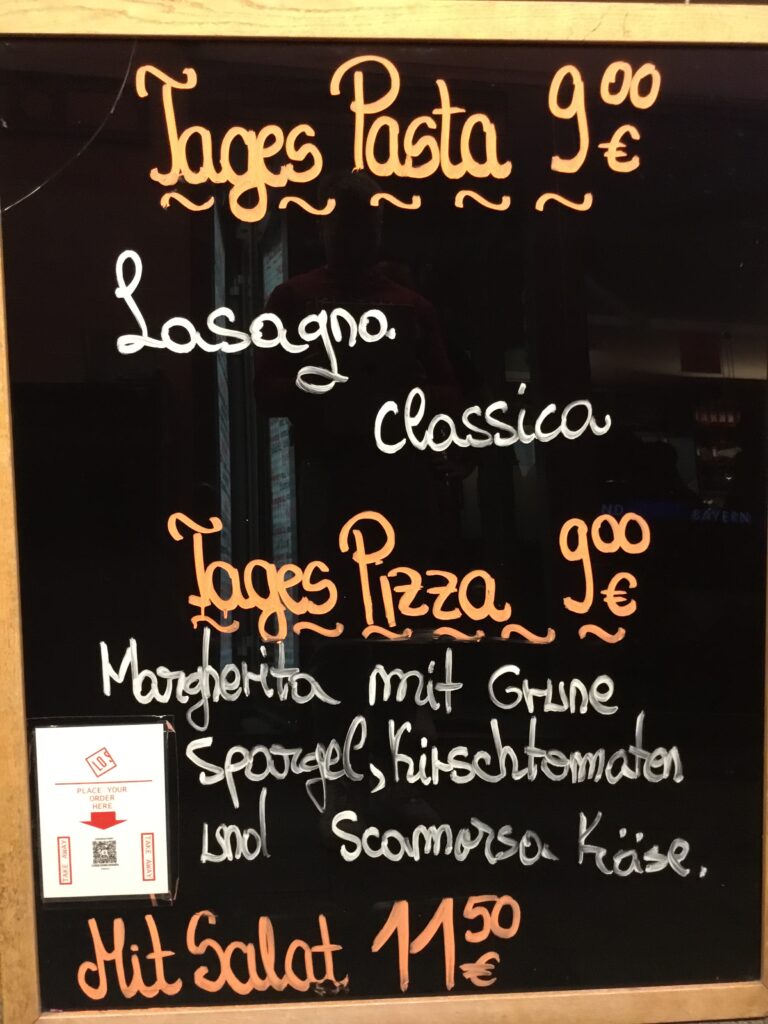 Tages Pasta 9 00 €
Lasagna
classica
Tages Pizza 9 00 €
Margherita mit Grune
Spargel, Kirschtomaten
und Scamorsa Käse.
LOS
PLACE YOUR
ORDER
HERE
TAKE AWAY
TAKE AWAY
Mit Salat 11 50 €
BAYERN